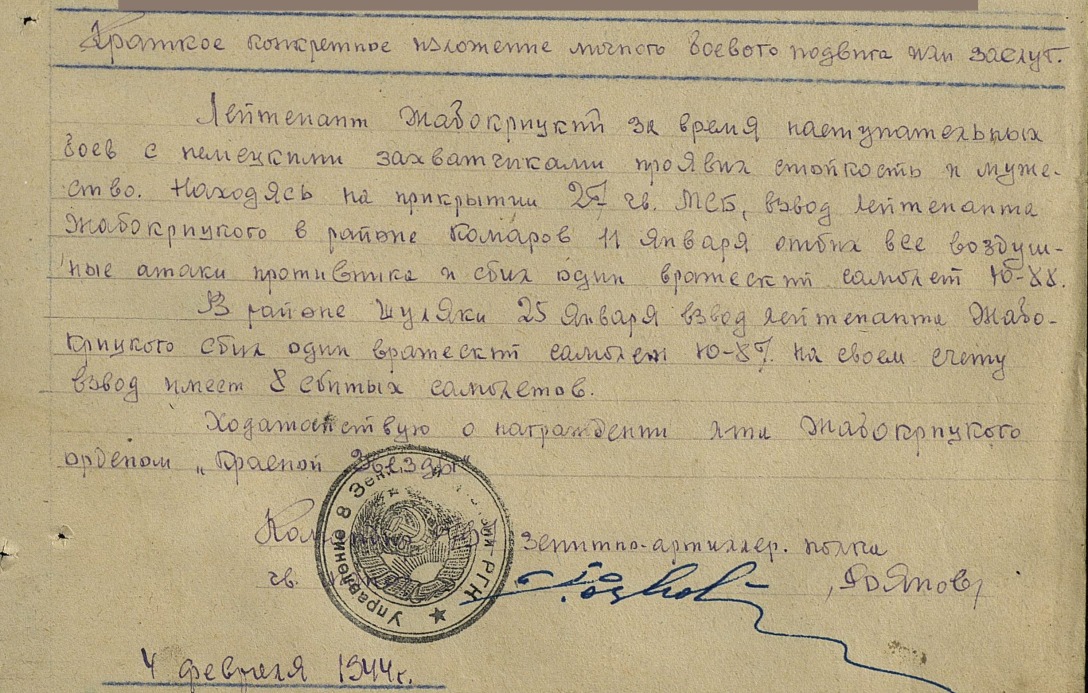 Краткое конкретное изложение личного боевого подвига или заслуг.
Лейтенант Жабокрицкий за время наступательных
боев с немецкими захватчиками проявил стойкость и муже-
ство. Находясь на прикрытии 27 гв. МСБ, взвод лейтенанта
Жабокрицкого в районе Комаров 11 января отбил все воздуш-
ные атаки противника и сбил один вражеский самолет Ю-88.
В районе Шуляки 25 января взвод лейтенанта Жабо-
крицкого сбил один вражеский самолет Ю-87. На своем счету
взвод имеет 8 сбитых самолетов.
Ходатайствую о награждении л-та Жабокрицкого
орденом „Красной Звезды"
зенитно-артиллер. полка
гв.
4 февраля 1944г.
Управление 8 Зен. РГК